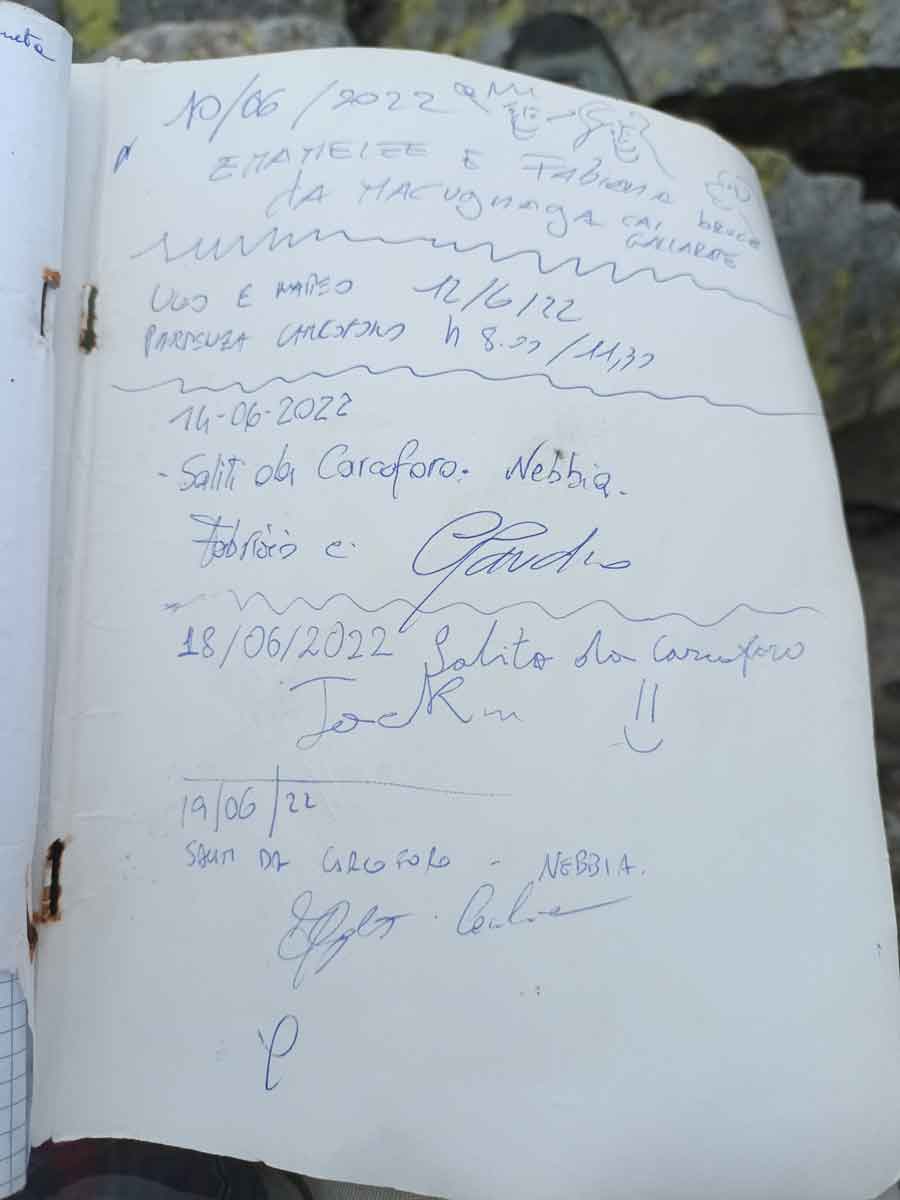 neta
10/06/2022
E FABIANA
da MACUGNAGA CAI
GALLARATE
UGO E MATTEO 12/6/22
PARTENZA CARCOFORO h 8.00/11,30
14-06-2022
- Saliti da Carcoforo. Nebbia.
Fabrizio e
18/06/2022 Salito da Carcoforo
19/06/22
SALITI DA CARCOFORO - NEBBIA.